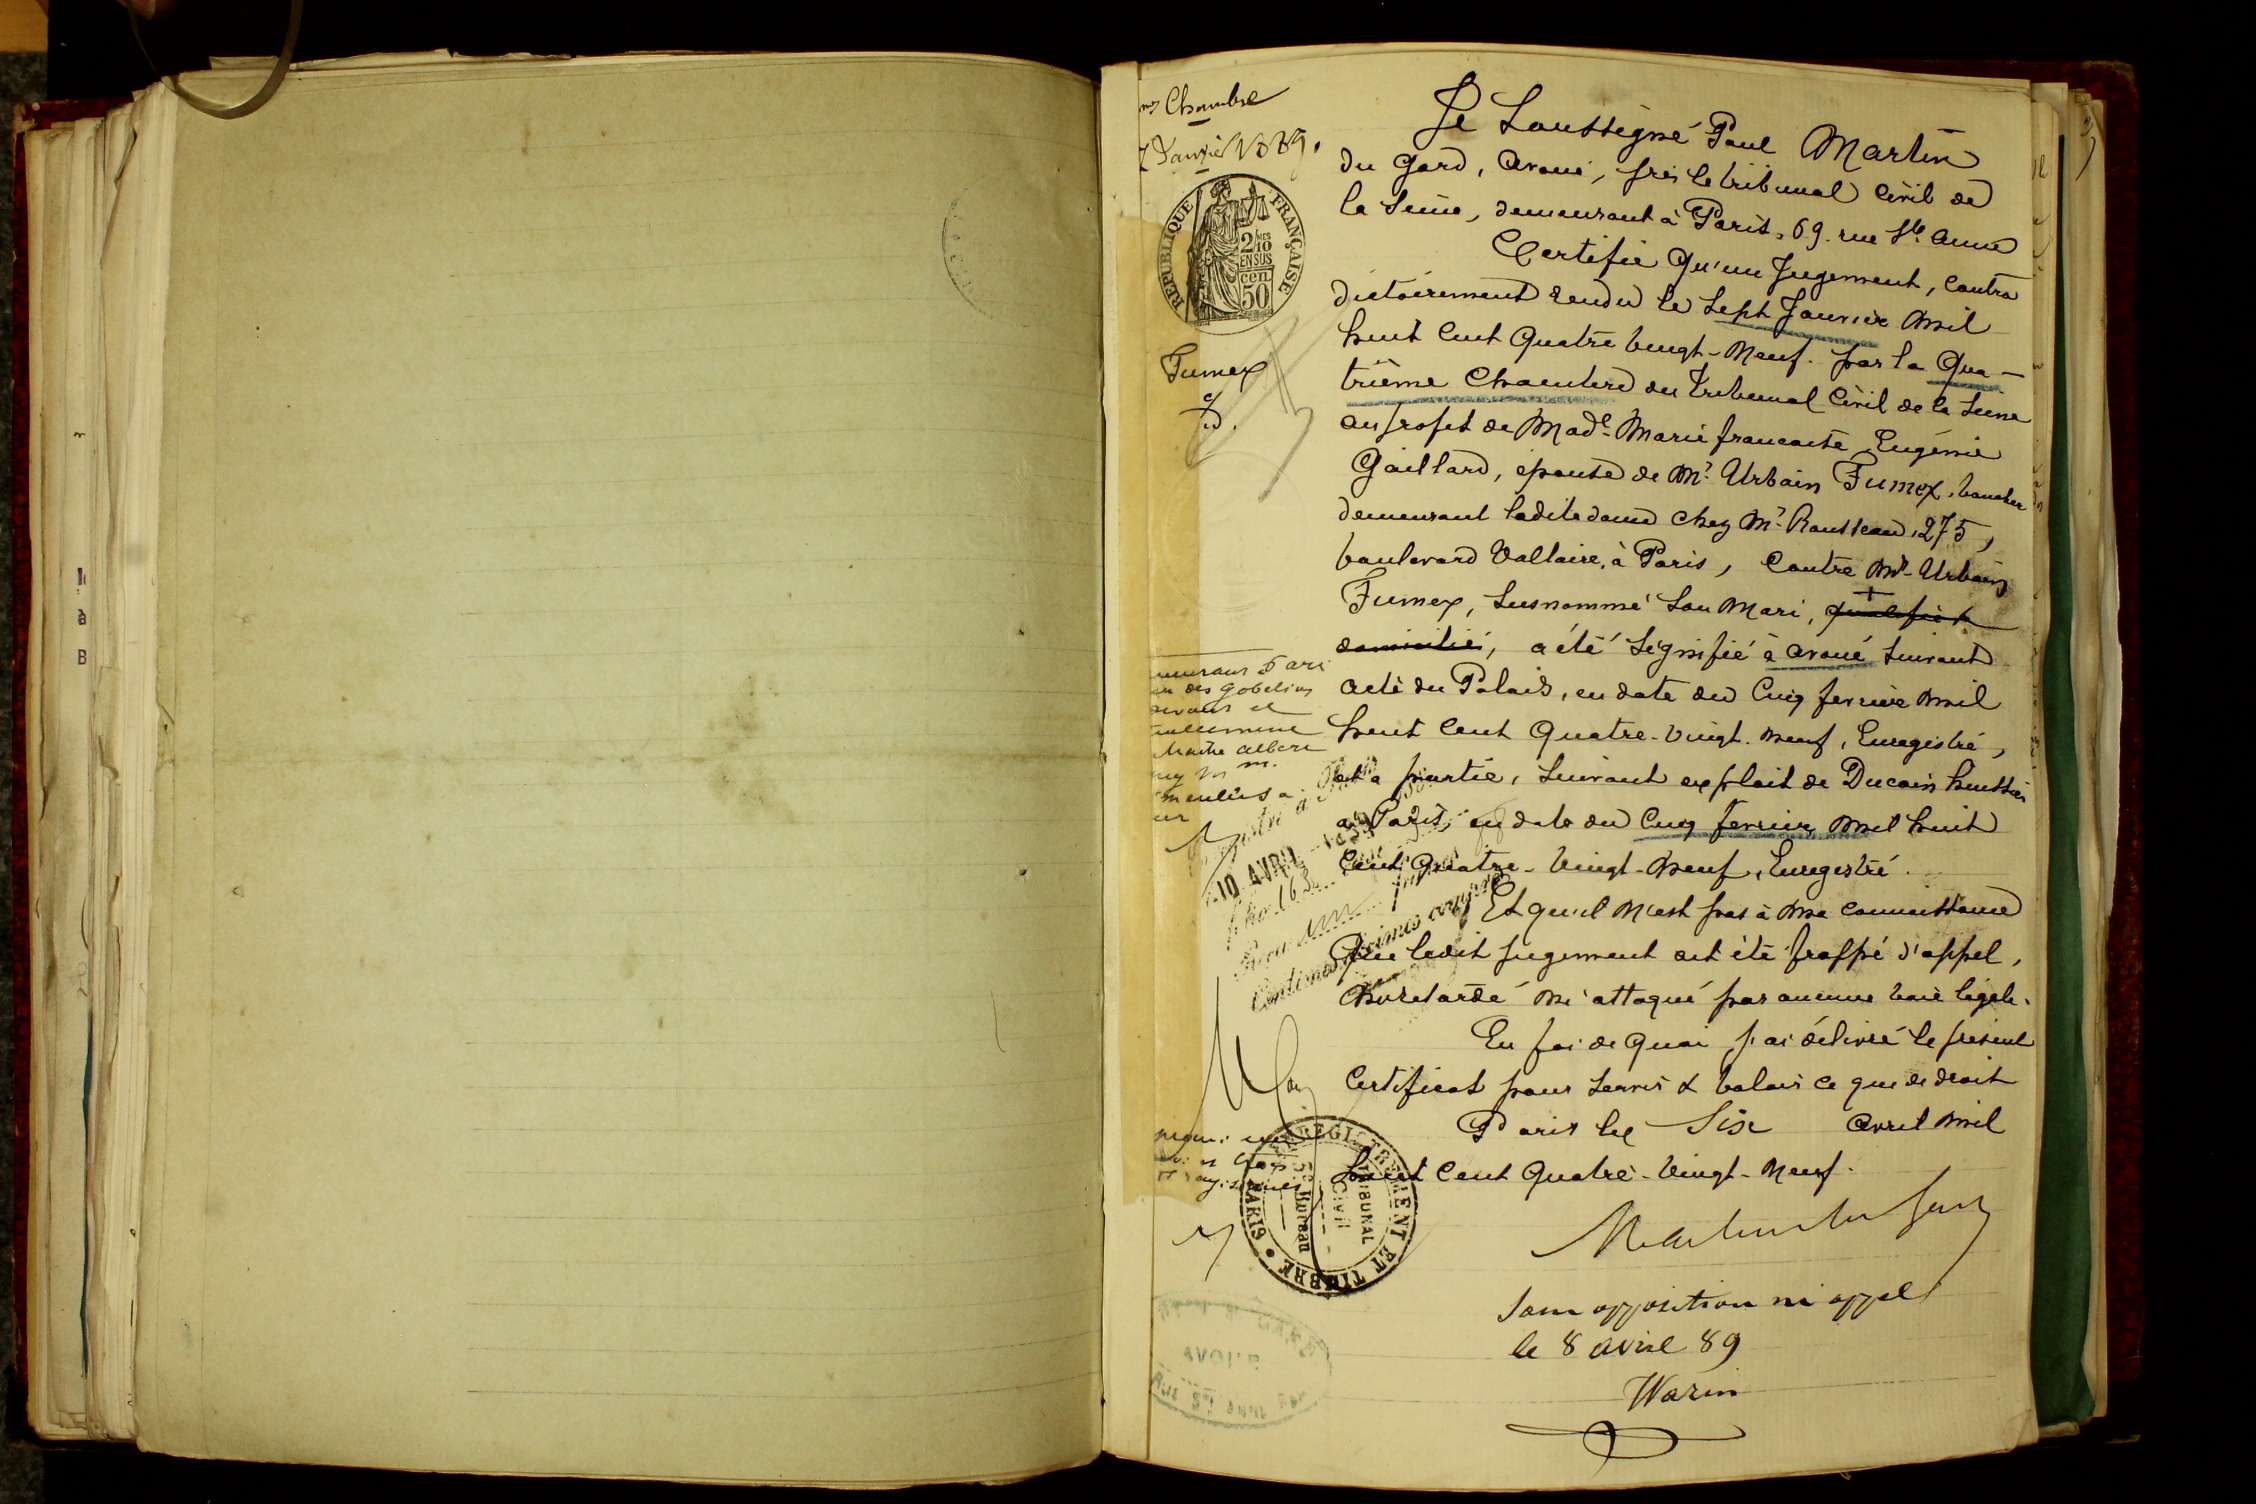 Chambre
7 Janvier 1889.
RÉPUBLIQUE FRANÇAISE
2/10
EN SUS
50
cen
Fumex
c
d.
Je Soussigné Paul Martin
du Gard, avoué, près le tribunal Civil de
la Seine, demeurant à Paris, 69. rue Ste Anne
Certifie qu'un Jugement, contra
dictoirement rendu le Sept Janvier mil
huit cent quatre vingt-neuf. par la Qua-
trième Chambre du Tribunal Civil de la Seine
au profit de Made Marie francoise Eugénie
Gaillard, épouse de Mr Urbain Fumex, boucher
demeurant ladite dame chez Mr Rousseau, 275,
boulevard Voltaire, à Paris, Contre Mr Urbain
Fumex, susnommé son Mari, qualifié &
domicilié, a été signifié à avoué suivant
acte du Palais, en date du Cinq fevrier mil
huit cent Quatre-vingt-neuf, Enregistré,
et à partie, suivant exploit de Ducoin huissier
à Paris, en date du Cinq fevrier mil huit
cent Quatre-vingt-neuf, Enregistré.
Et qu'il n'est pas à ma connaissance
Que ledit jugement ait été frappé d'appel,
ni attaqué par aucune voie légale.
En foi de quoi j'ai délivré le présent
Certificat pour servir & valoir ce que de droit
Paris le Six avril mil
huit cent Quatre-vingt-neuf.
Martin du Gard
des Gobelins
Maitre Albert
10 AVRIL 1889
centimes décimes compris
ENREGISTREMENT ET TIMBRE
PARIS
5e Bureau
TRIBUNAL
Civil
AVOUÉ
Sans opposition ni appel
le 8 avril 89
Warin